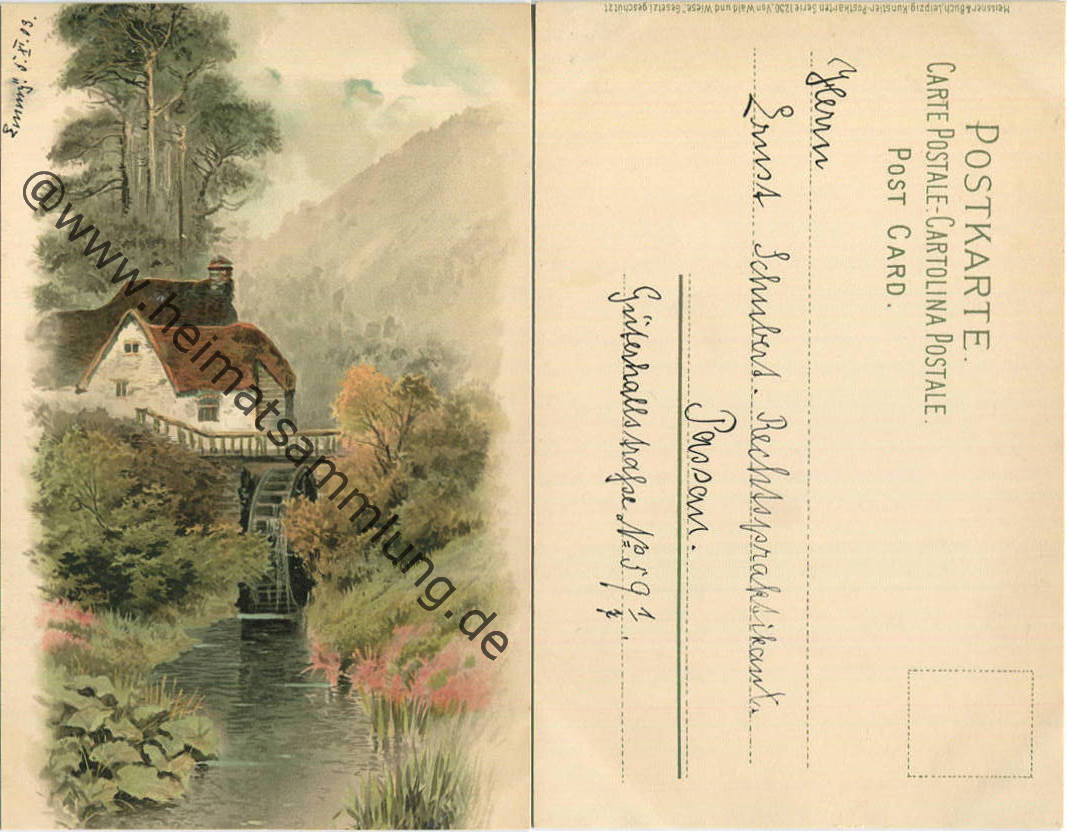 @www.heimatsammlung.de
Meissner & Buch, Leipzig Künstler-Postkarten Serie 1230 „Von Wald und Wiese“ Gesetzl. geschützt
POSTKARTE.
CARTE POSTALE-CARTOLINA POSTALE.
POST CARD.
Herrn
Ernst Schubert. Rechtspraktikant.
Passau.
Güterhallstraße No 59